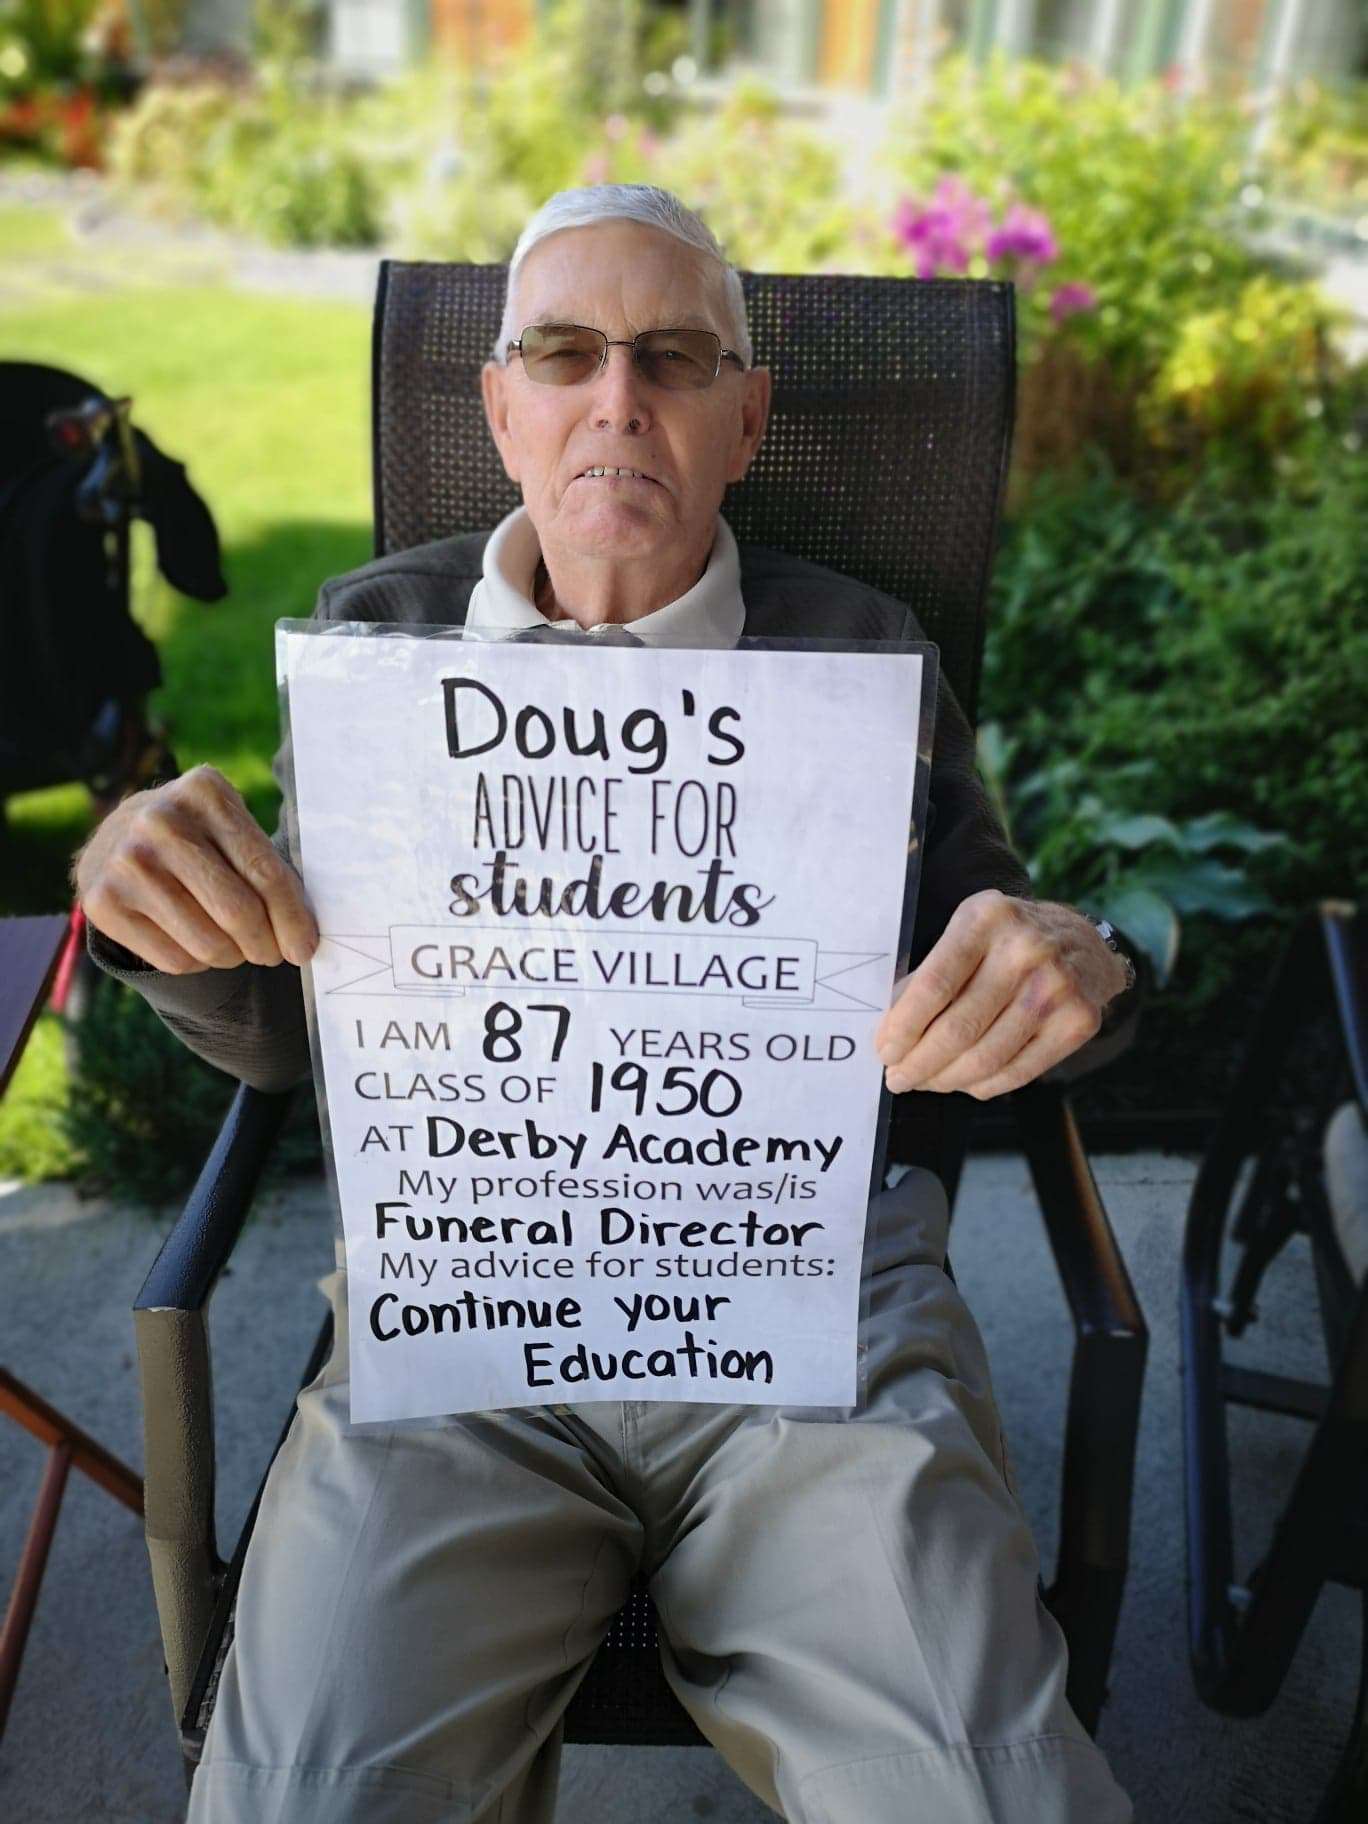 Doug's
ADVICE FOR
students
GRACE VILLAGE
I AM 87 YEARS OLD
CLASS OF 1950
AT Derby Academy
My profession was/is
Funeral Director
My advice for students:
Continue your
Education